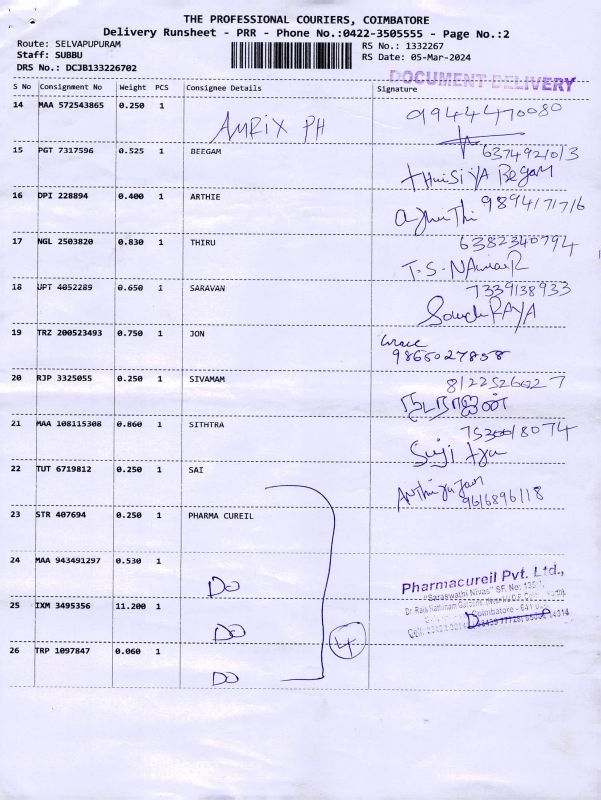 THE PROFESSIONAL COURIERS, COIMBATORE
Delivery Runsheet - PRR - Phone No.:0422-3505555 - Page No.:2
Route: SELVAPUPURAM RS No.: 1332267
Staff: SUBBU RS Date: 05-Mar-2024
DRS No.: DCJB133226702
DOCUMENT DELIVERY
S No Consignment No Weight PCS Consignee Details Signature
14 MAA 572543865 0.250 1 AMRIX PH 9944470080
15 PGT 7317596 0.525 1 BEEGAM 6374921013
Begam
16 DPI 228894 0.400 1 ARTHIE 9894171716
17 NGL 2503820 0.830 1 THIRU 6382340794
T.S.
18 UPT 4052289 0.650 1 SARAVAN 7339138933
19 TRZ 200523493 0.750 1 JON
9865027858
20 RJP 3325055 0.250 1 SIVAMAM 81225260227
நடராஜன்
21 MAA 108115308 0.860 1 SITHTRA
Suji
22 TUT 6719812 0.250 1 SAI
9616896118
23 STR 407694 0.250 1 PHARMA CUREIL
24 MAA 943491297 0.530 1
DO
Pharmacureil Pvt. Ltd.,
"Saraswathi Nivas" SF. No:
25 IXM 3495356 11.200 1
DO
Coimbatore - 641
4
26 TRP 1097847 0.060 1
DO